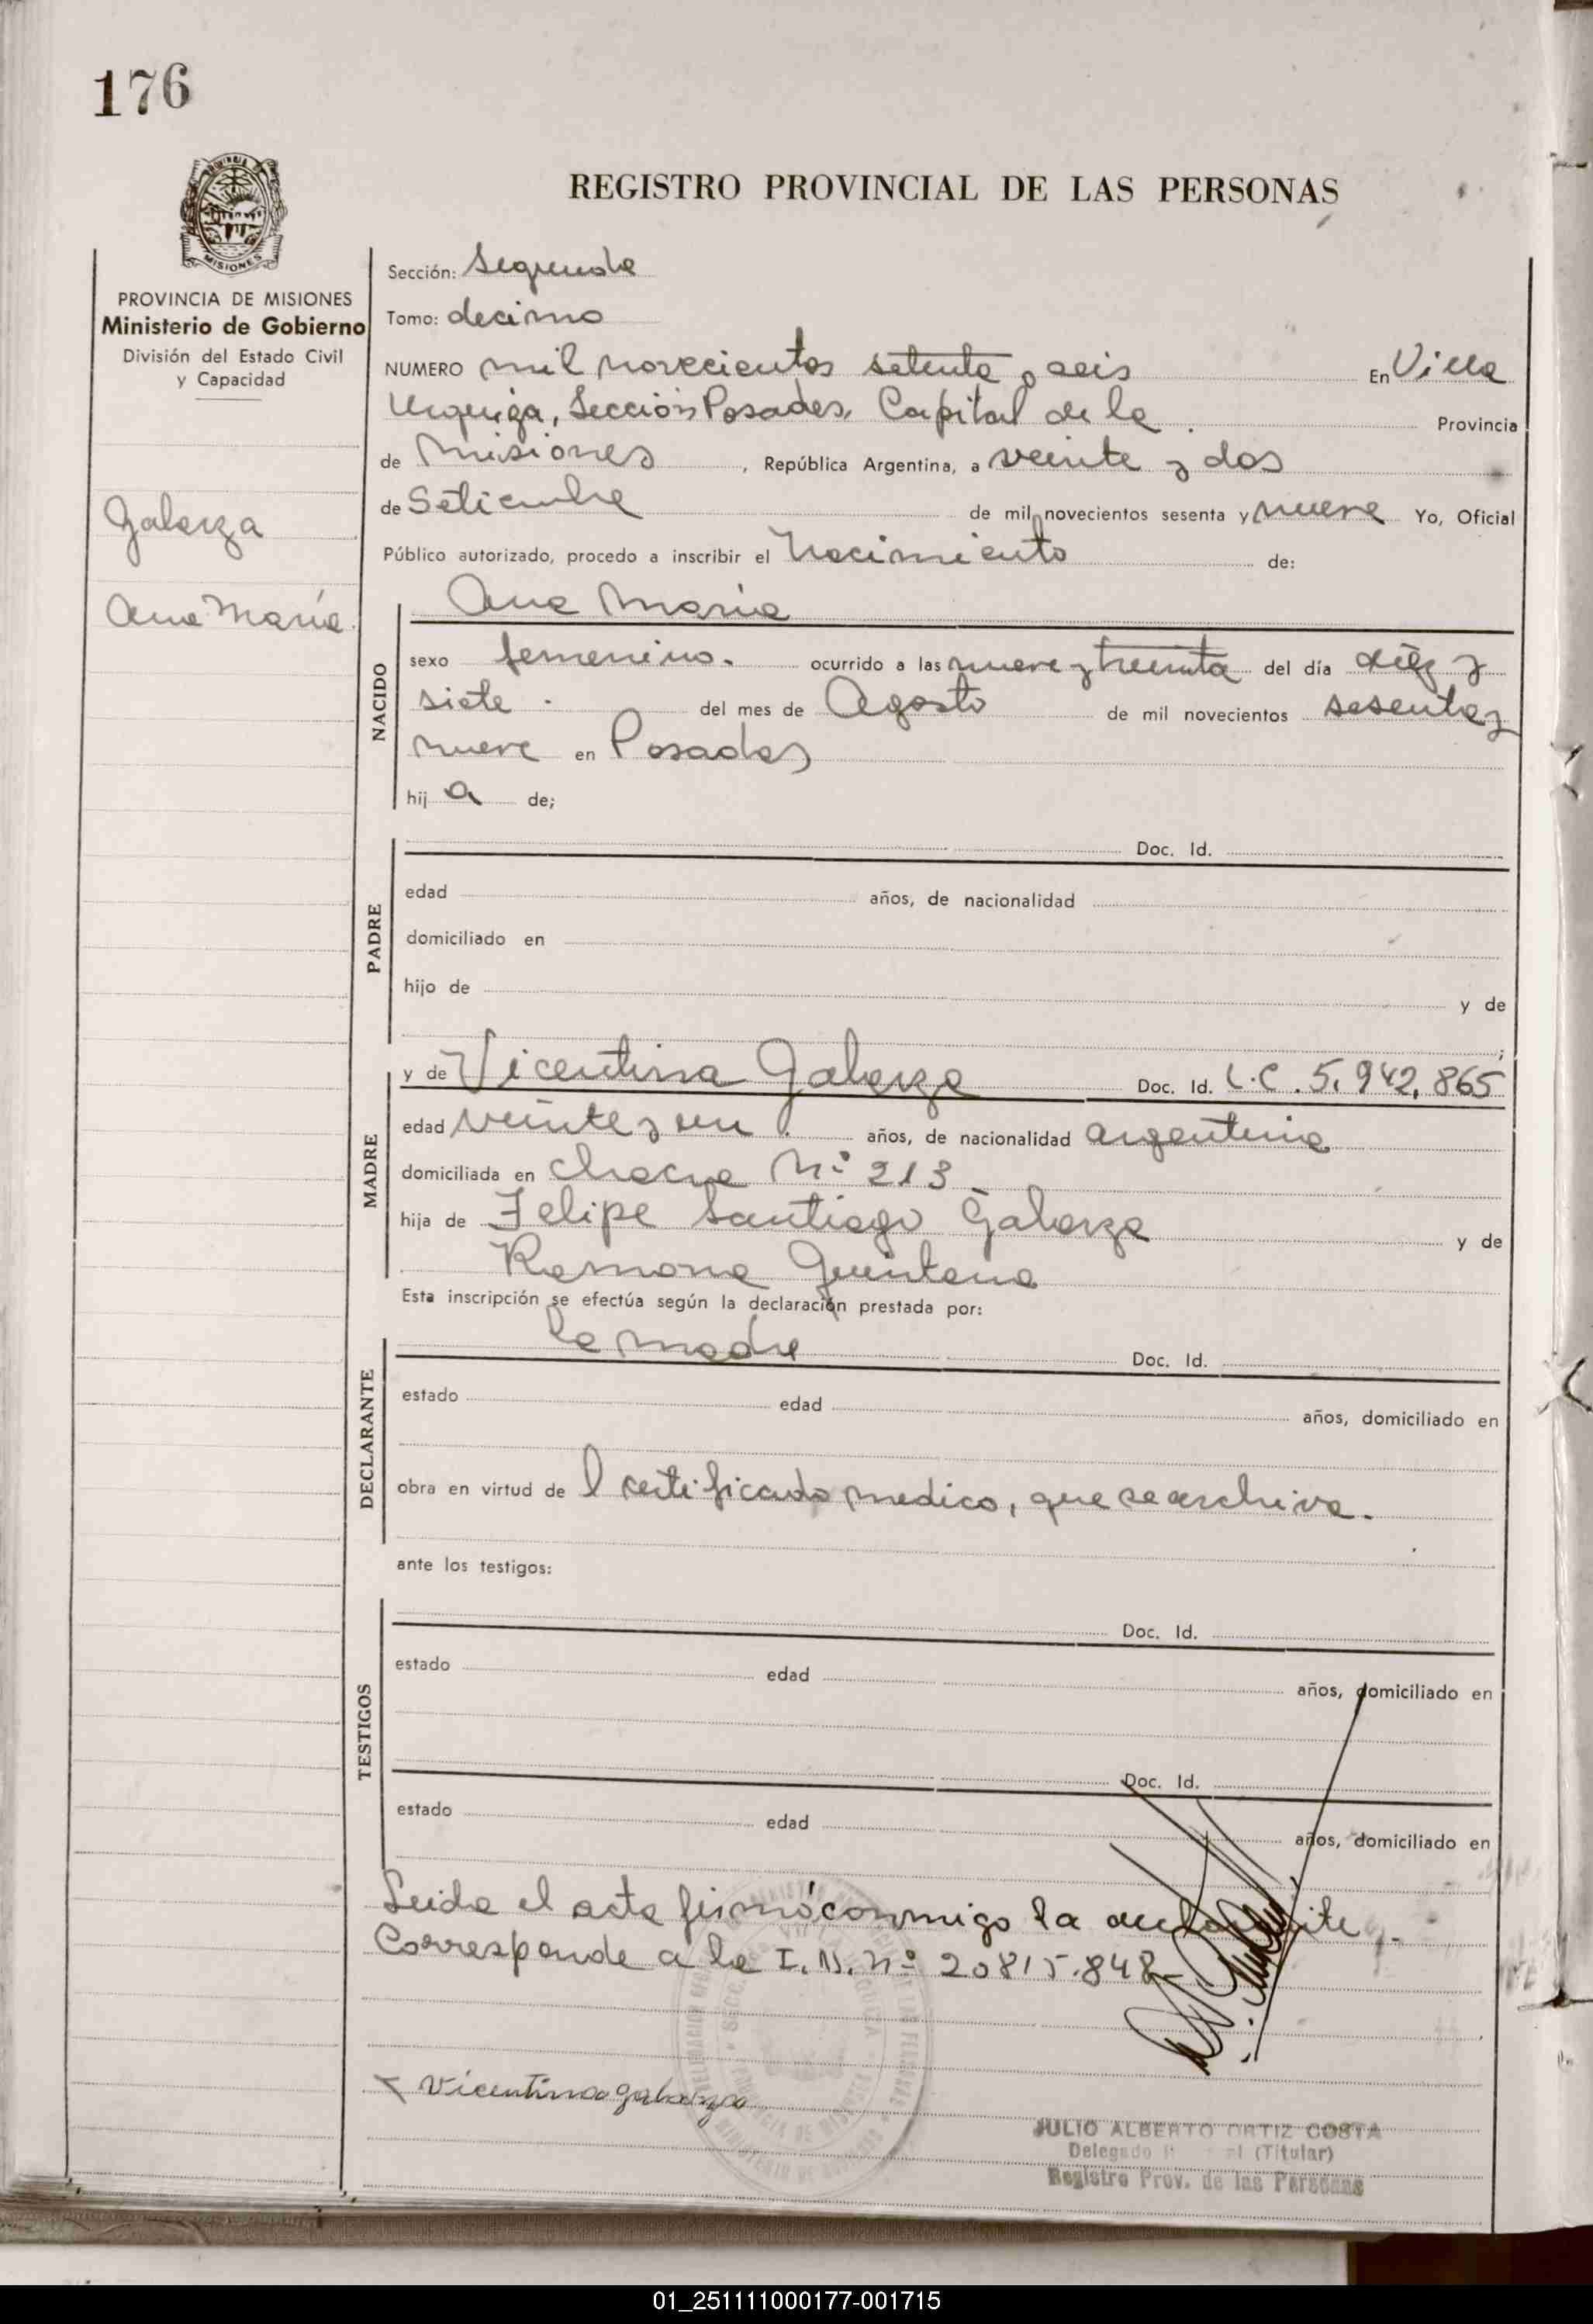 176
REGISTRO PROVINCIAL DE LAS PERSONAS
MISIONES
PROVINCIA DE MISIONES
Ministerio de Gobierno
División del Estado Civil
y Capacidad
Galarza
Ana María
Sección: Segunda
Tomo: decimo
NUMERO mil novecientos setenta y seis En Villa
Urquiza, Sección Posadas, Capital de la Provincia
de Misiones, República Argentina, a veinte y dos
de Setiembre de mil novecientos sesenta y nueve Yo, Oficial
Público autorizado, procedo a inscribir el Nacimiento de:
NACIDO
Ana María
sexo femenino. ocurrido a las nueve y treinta del día diez y
siete. del mes de Agosto de mil novecientos sesenta y
nueve en Posadas
hij a de;
PADRE
Doc. Id.
edad años, de nacionalidad
domiciliado en
hijo de y de
;
MADRE
y de Vicentina Galarza Doc. Id. L.C. 5.942.865
edad veinte y un años, de nacionalidad argentina
domiciliada en chacra Nº 213
hija de Felipe Santiago Galarza y de
Ramona Quintana
Esta inscripción se efectúa según la declaración prestada por:
DECLARANTE
la madre Doc. Id.
estado edad años, domiciliado en
obra en virtud de l certificado medico, que se archiva.
ante los testigos:
TESTIGOS
Doc. Id.
estado edad años, domiciliado en
Doc. Id.
estado edad años, domiciliado en
Leida el acta firmó conmigo la declarante.
Corresponde a la I.N. Nº 20815.848-
Vicentina galarza
JULIO ALBERTO ORTIZ COSTA
Delegado (Titular)
Registro Prov. de las Personas
01_251111000177-001715